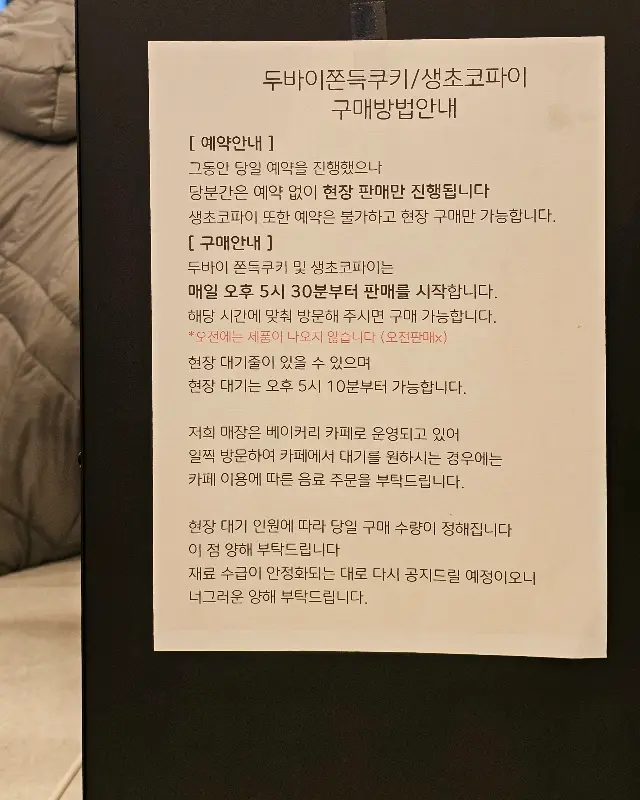 두바이쫀득쿠키/생초코파이
구매방법안내
[ 예약안내 ]
그동안 당일 예약을 진행했으나
당분간은 예약 없이 현장 판매만 진행됩니다
생초코파이 또한 예약은 불가하고 현장 구매만 가능합니다.
[ 구매안내 ]
두바이 쫀득쿠키 및 생초코파이는
매일 오후 5시 30분부터 판매를 시작합니다.
해당 시간에 맞춰 방문해 주시면 구매 가능합니다.
*오전에는 제품이 나오지 않습니다 (오전판매x)
현장 대기줄이 있을 수 있으며
현장 대기는 오후 5시 10분부터 가능합니다.
저희 매장은 베이커리 카페로 운영되고 있어
일찍 방문하여 카페에서 대기를 원하시는 경우에는
카페 이용에 따른 음료 주문을 부탁드립니다.
현장 대기 인원에 따라 당일 구매 수량이 정해집니다
이 점 양해 부탁드립니다
재료 수급이 안정화되는 대로 다시 공지드릴 예정이오니
너그러운 양해 부탁드립니다.